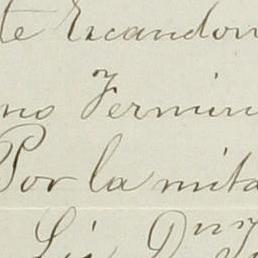 te Escandon
no Fermin
Por la mita
Lic